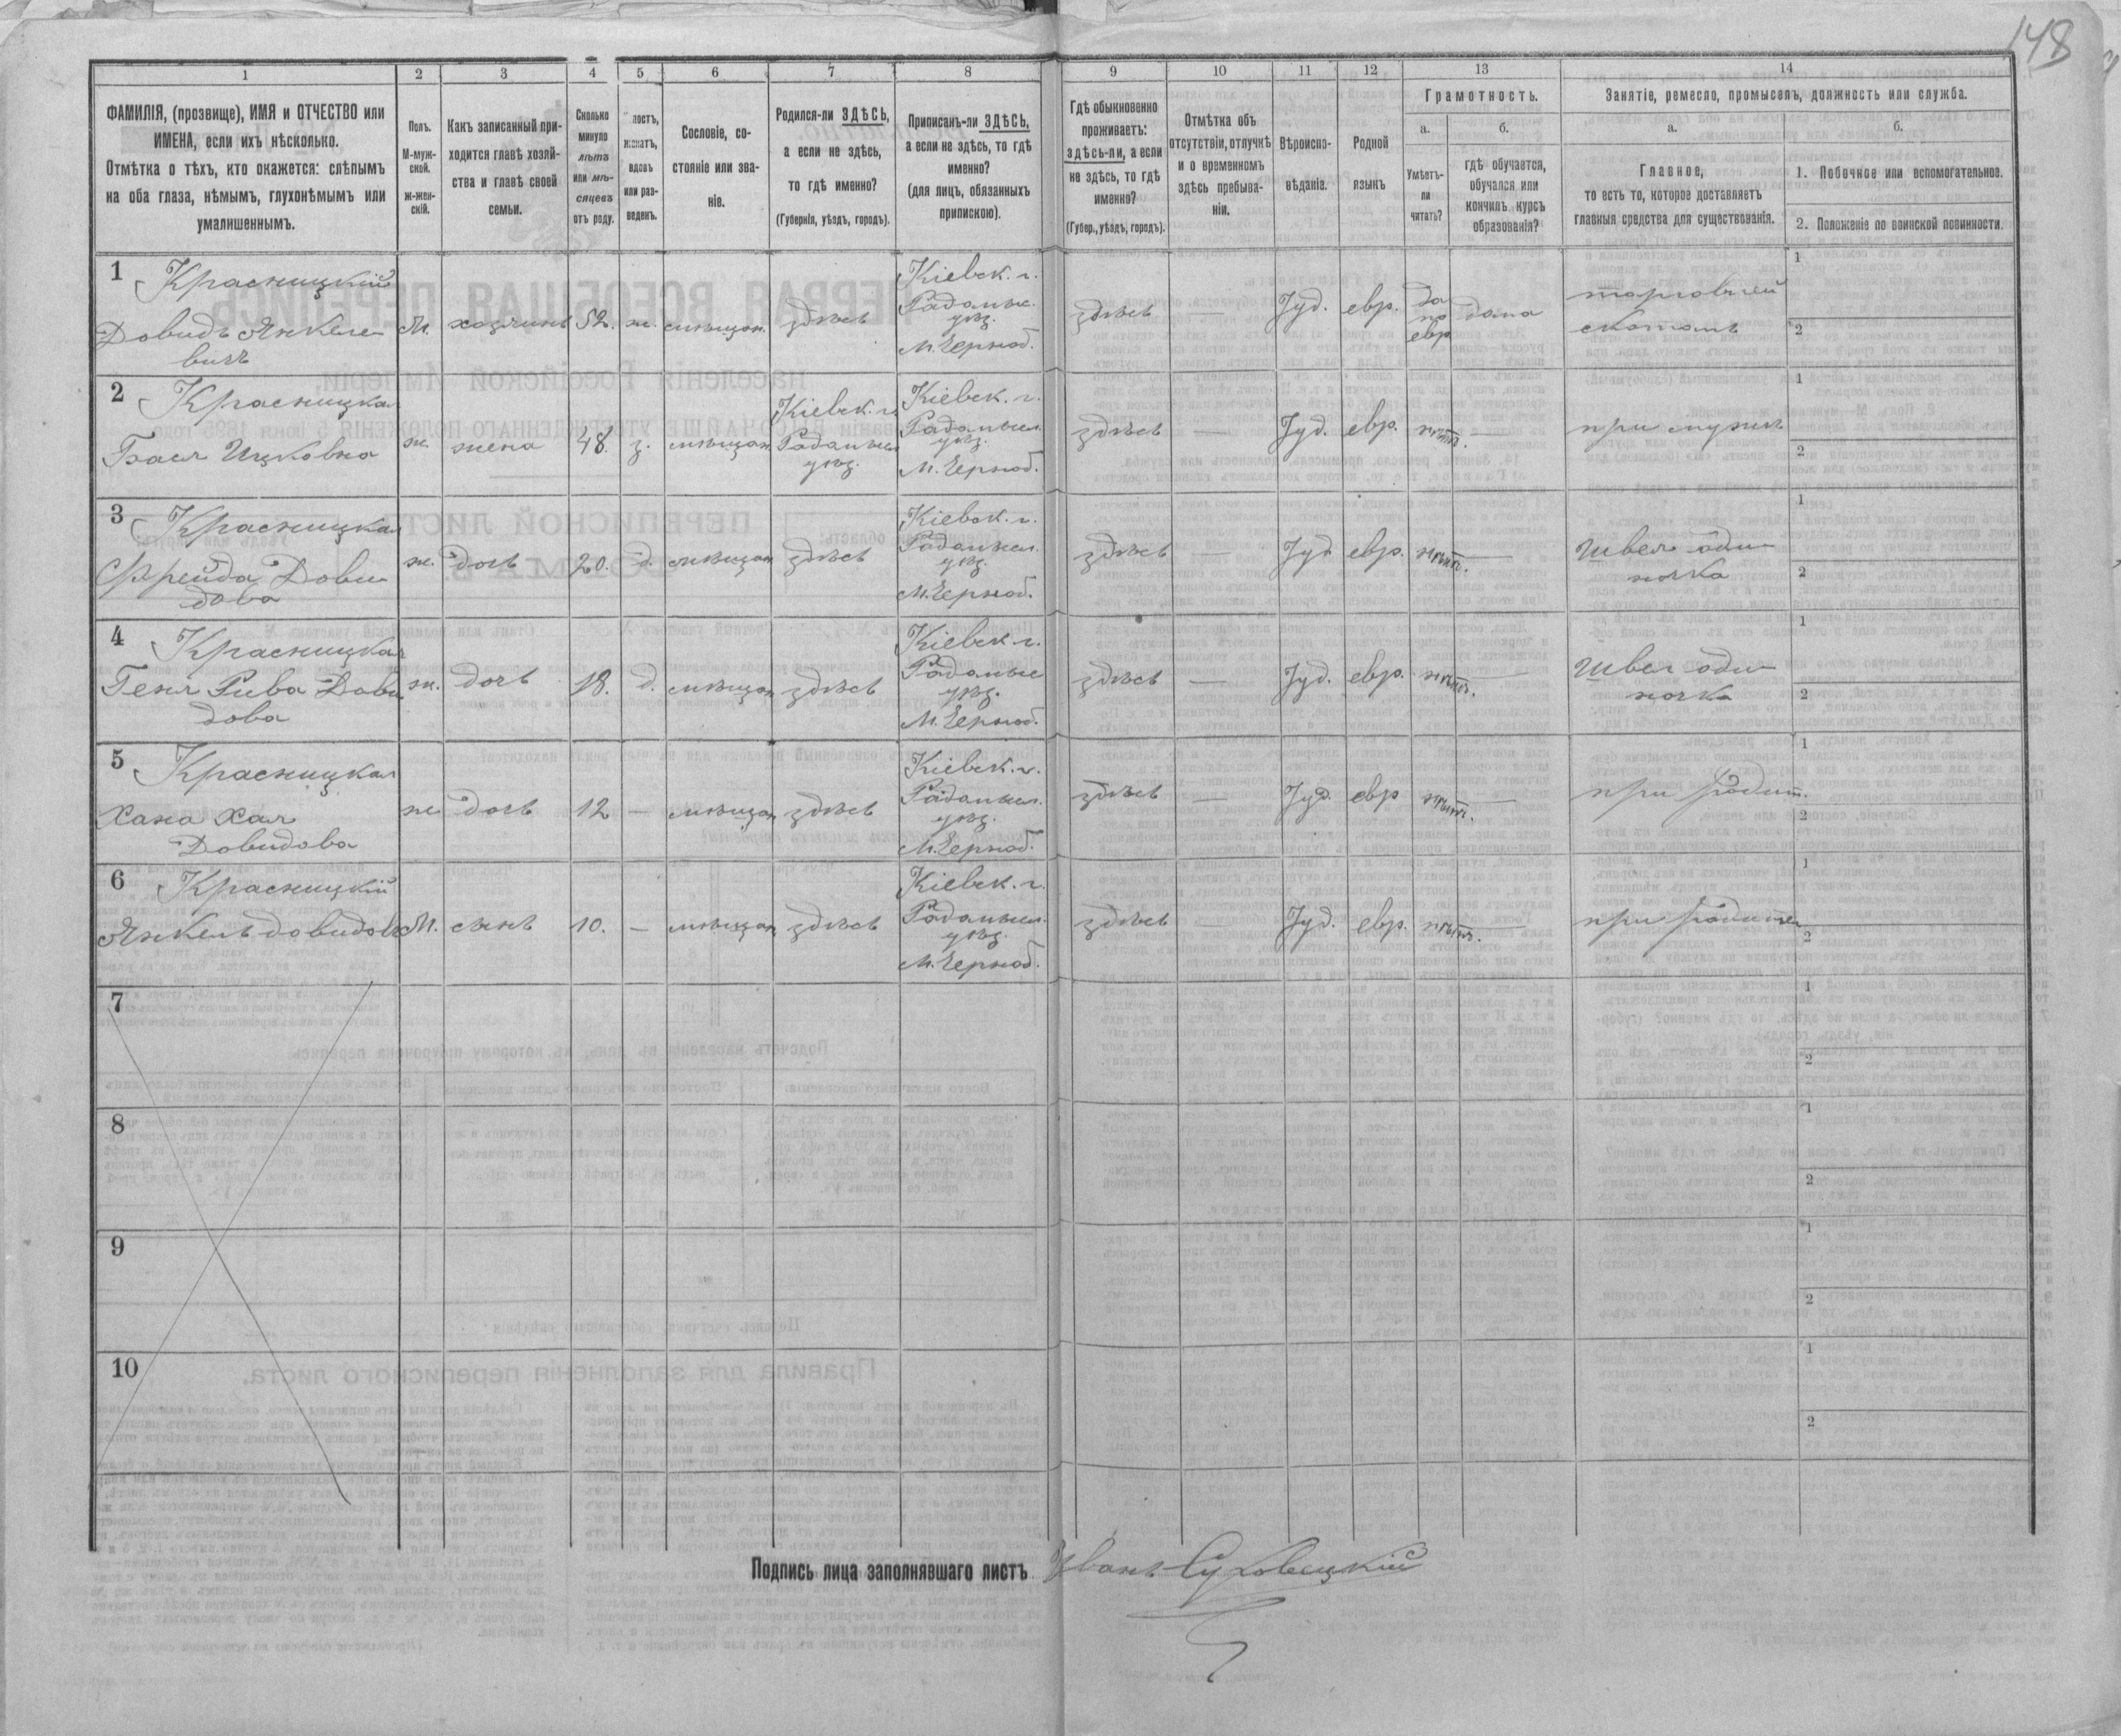 148
1 2 3 4 5 6 7 8 9 10 11 12 13 14
ФАМИЛІЯ, (прозвище), ИМЯ и ОТЧЕСТВО или
ИМЕНА, если ихъ нѣсколько.
Отмѣтка о тѣхъ, кто окажется: слѣпымъ
на оба глаза, нѣмымъ, глухонѣмымъ или
умалишеннымъ.
Полъ.
М-муж-
ской.
ж-жен-
скій.
Какъ записанный при-
ходится главѣ хозяй-
ства и главѣ своей
семьи.
Сколько
минуло
лѣтъ
или мѣ-
сяцевъ
отъ роду.
лостъ,
женатъ,
вдовъ
или раз-
веденъ.
Сословіе, со-
стояніе или зва-
ніе.
Родился-ли ЗДѢСЬ,
а если не здѣсь,
то гдѣ именно?
(Губернія, уѣздъ, городъ).
Приписанъ-ли ЗДѢСЬ,
а если не здѣсь, то гдѣ
именно?
(для лицъ, обязанныхъ
припискою).
Гдѣ обыкновенно
проживаетъ:
здѣсь-ли, а если
не здѣсь, то гдѣ
именно?
(Губер., уѣздъ, городъ).
Отмѣтка объ
отсутствіи, отлучкѣ
и о временномъ
здѣсь пребыва-
ніи.
Вѣроиспо-
вѣданіе.
Родной
языкъ
Грамотность.
а.
Умѣетъ-
ли
читать?
б.
гдѣ обучается,
обучался или
кончилъ курсъ
образованія?
Занятіе, ремесло, промыселъ, должность или служба.
а.
Главное,
то есть то, которое доставляетъ
главныя средства для существованія.
б.
1. Побочное или вспомогательное.
2. Положеніе по воинской повинности.
1 Красницкій
Довидъ Янкеле-
вичъ
М.
хозяинъ
52.
ж.
мѣщан.
здѣсь
Кіевск. г.
Радомыс.
уѣз.
М. Черноб.
здѣсь
—
Іуд.
евр.
да
по
евр
дома
торговлей
скотомъ
1
2
2 Красницкая
Бася Ицковна
ж.
жена
48.
з.
мѣщан
Кіевск. г.
Радомысл
уѣз.
Кіевск. г.
Радомысл.
уѣз.
М. Черноб.
здѣсь
—
Іуд.
евр.
нѣтъ.
—
при мужѣ
1
2
3 Красницкая
Фрейда Дови
дова
ж.
дочь
20.
д.
мѣщан
здѣсь
Кіевск. г.
Радомысл.
уѣз.
М. Черноб.
здѣсь
—
Іуд
евр.
нѣтъ.
—
Швея оди-
ночка
1
2
4 Красницкая
Геня Рива Дови
дова
ж.
дочь
18.
д.
мѣщан
здѣсь
Кіевск г.
Радомыс
уѣз.
М. Черноб.
здѣсь
—
Іуд.
евр.
нѣтъ.
—
Швея оди-
ночка
1
2
5 Красницкая
Хана Хая
Довидова
ж
дочь
12
—
мѣщан
здѣсь
Кіевск. г.
Радомысл.
уѣз.
М. Черноб.
здѣсь
—
Іуд.
евр
нѣтъ.
—
при родит.
1
2
6 Красницкій
Янкель Довидов
М.
сынъ
10.
—
мѣщан
здѣсь
Кіевск. г.
Радомысл.
уѣз.
М. Черноб.
здѣсь
—
Іуд.
евр.
нѣтъ.
—
при родител
1
2
7
1
2
8
1
2
9
1
2
10
1
2
Подпись лица заполнявшаго листъ Иванъ Суховецкій